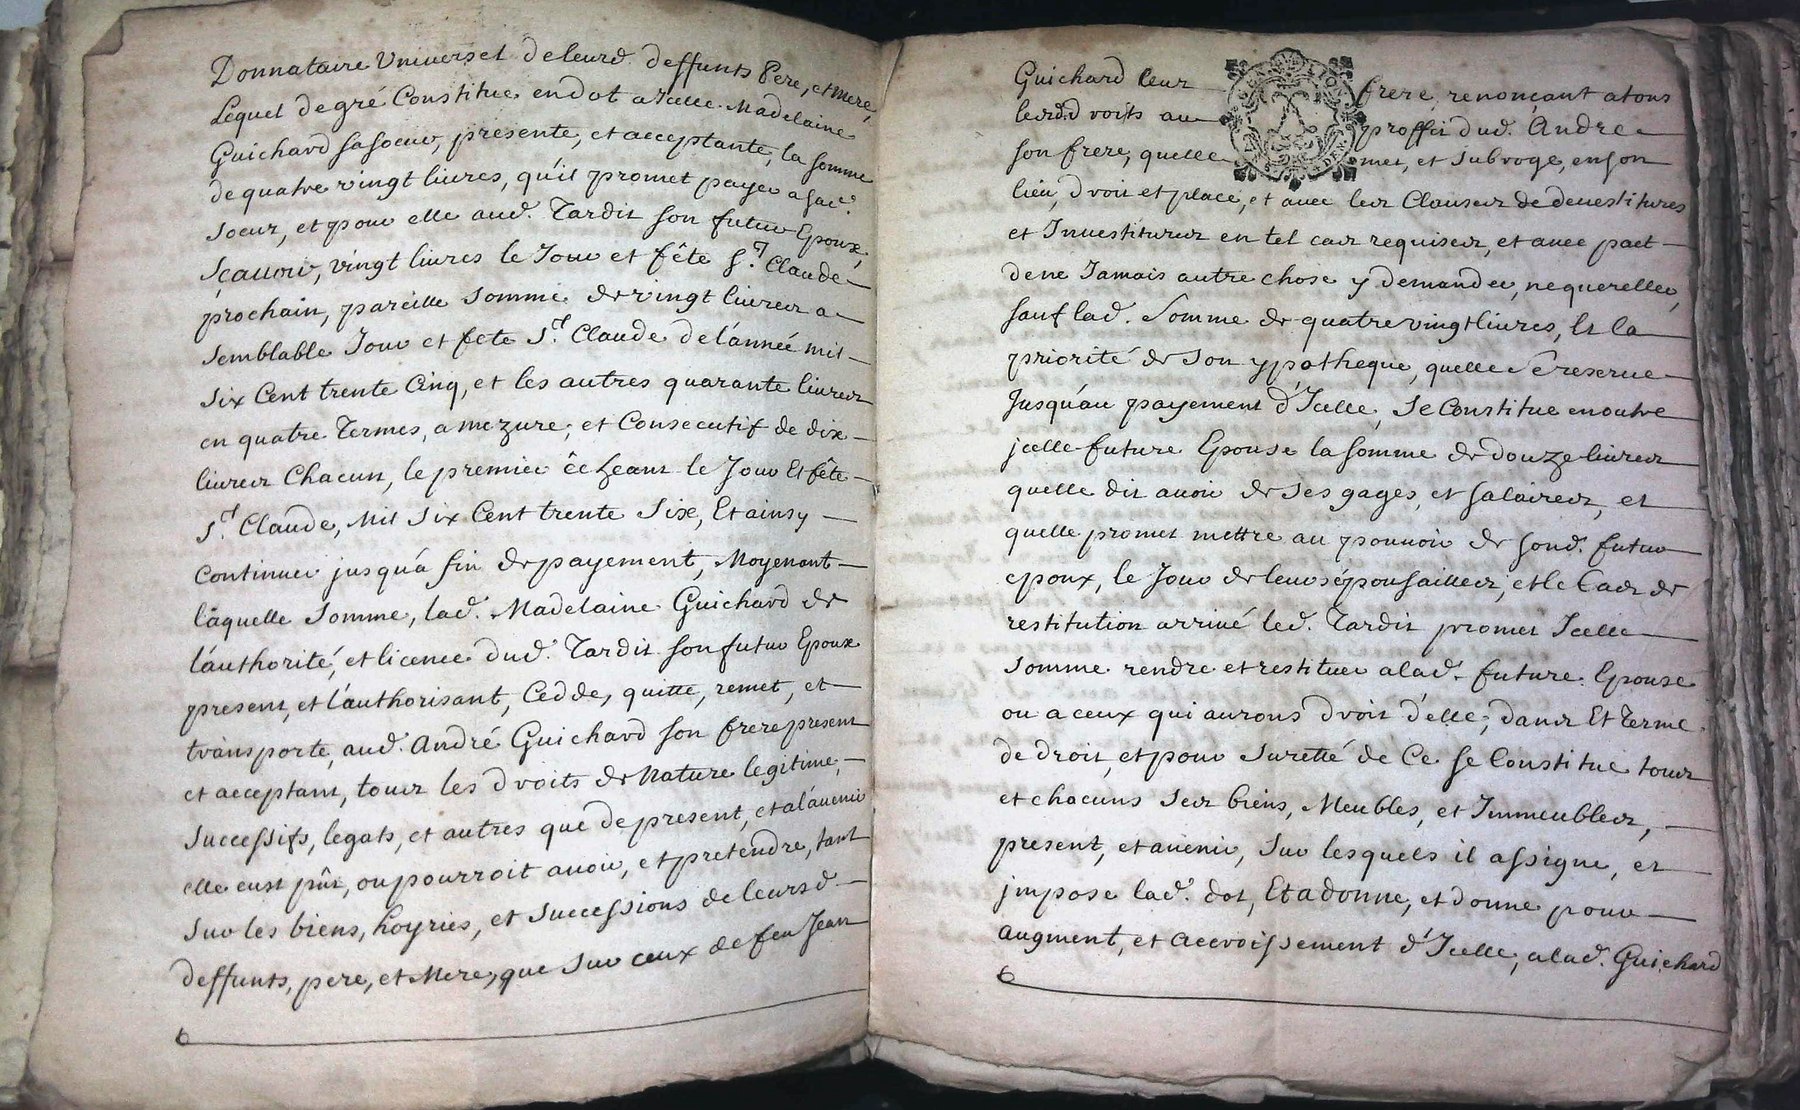 Donnataire Universel de leurd. deffunts Pere, et Mere,
Lequel de gré Constitue en dot a Icelle Madelaine
Guichard sa soeur, presente, et acceptante, la somme
de quatre vingt livres, qu'il promet payer a sad.
soeur, et pour elle aud. Tardit son futur Epoux,
sçauoir, vingt liures le Jour et fête St. Claude
prochain, pareille somme de vingt liures a
semblable Jour et fete St. Claude de l'année mil
six Cent trente Cinq, et les autres quarante liures
en quatre Termes, a mezure, et Consecutif de dix
liures Chacun, le premier êcheant le Jour Et fête
St. Claude, Mil Six Cent trente Six, Et ainsy
Continuer jusqu'á fin de payement, Moyenant
laquelle Somme, lad. Madelaine Guichard de
l'authorité, et licence dud. Tardit son futur Epoux
present, et l'authorisant, Cedde, quitte, remet, et
transporte, aud. André Guichard son frere present
et acceptant, tous les droits de Nature legitime,
successifs, legats, et autres que de present, et a l'auenir
elle eust pût, ou pourroit auoir, et pretendre, tant
sur les biens, hoyries, et successions de leursd.
deffunts, pere, et Mere, que sur ceux de feu Jean
Guichard leur frere, renonçant a tous
lesd. droits au proffit dud. Andre
son frere, quelle met, et subroge, en son
lieu, droit et place, et auec les Clauses de deuestitures
et Inuestitures en tel cas requises, et auec pact
de ne Jamais autre chose y demander, ne quereller,
sauf lad. Somme de quatre vingt liures, Et la
priorité de son ypotheque, quelle Se reserue
Jusqu'au payement d'Icelle, Se Constitue en outre
jcelle future Epouse la somme de douze liures
quelle dit auoir de Ses gages, et salaires, et
quelle promet mettre au pouuoir de sond. futur
epoux, le Jour de leurs épousailles, et le Cas de
restitution arriué led. Tardit promet Icelle
somme rendre et restituer a lad. future Epouse
ou a ceux qui aurons droit d'elle, dans Et Terme
de droit, et pour Suretté de Ce Se Constitue tous
et chacuns Ses biens, Meubles, et Immeubles,
present, et auenir, Sur lesquels il assigne, et
jmpose lad. dot, Et a donne, et donne pour
augment, et accroissement d'Icelle, a lad. Guichard